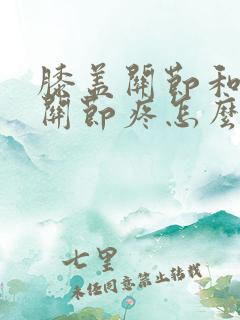 膝盖關節和
關節疼怎麼
七里
未经同意禁止转载